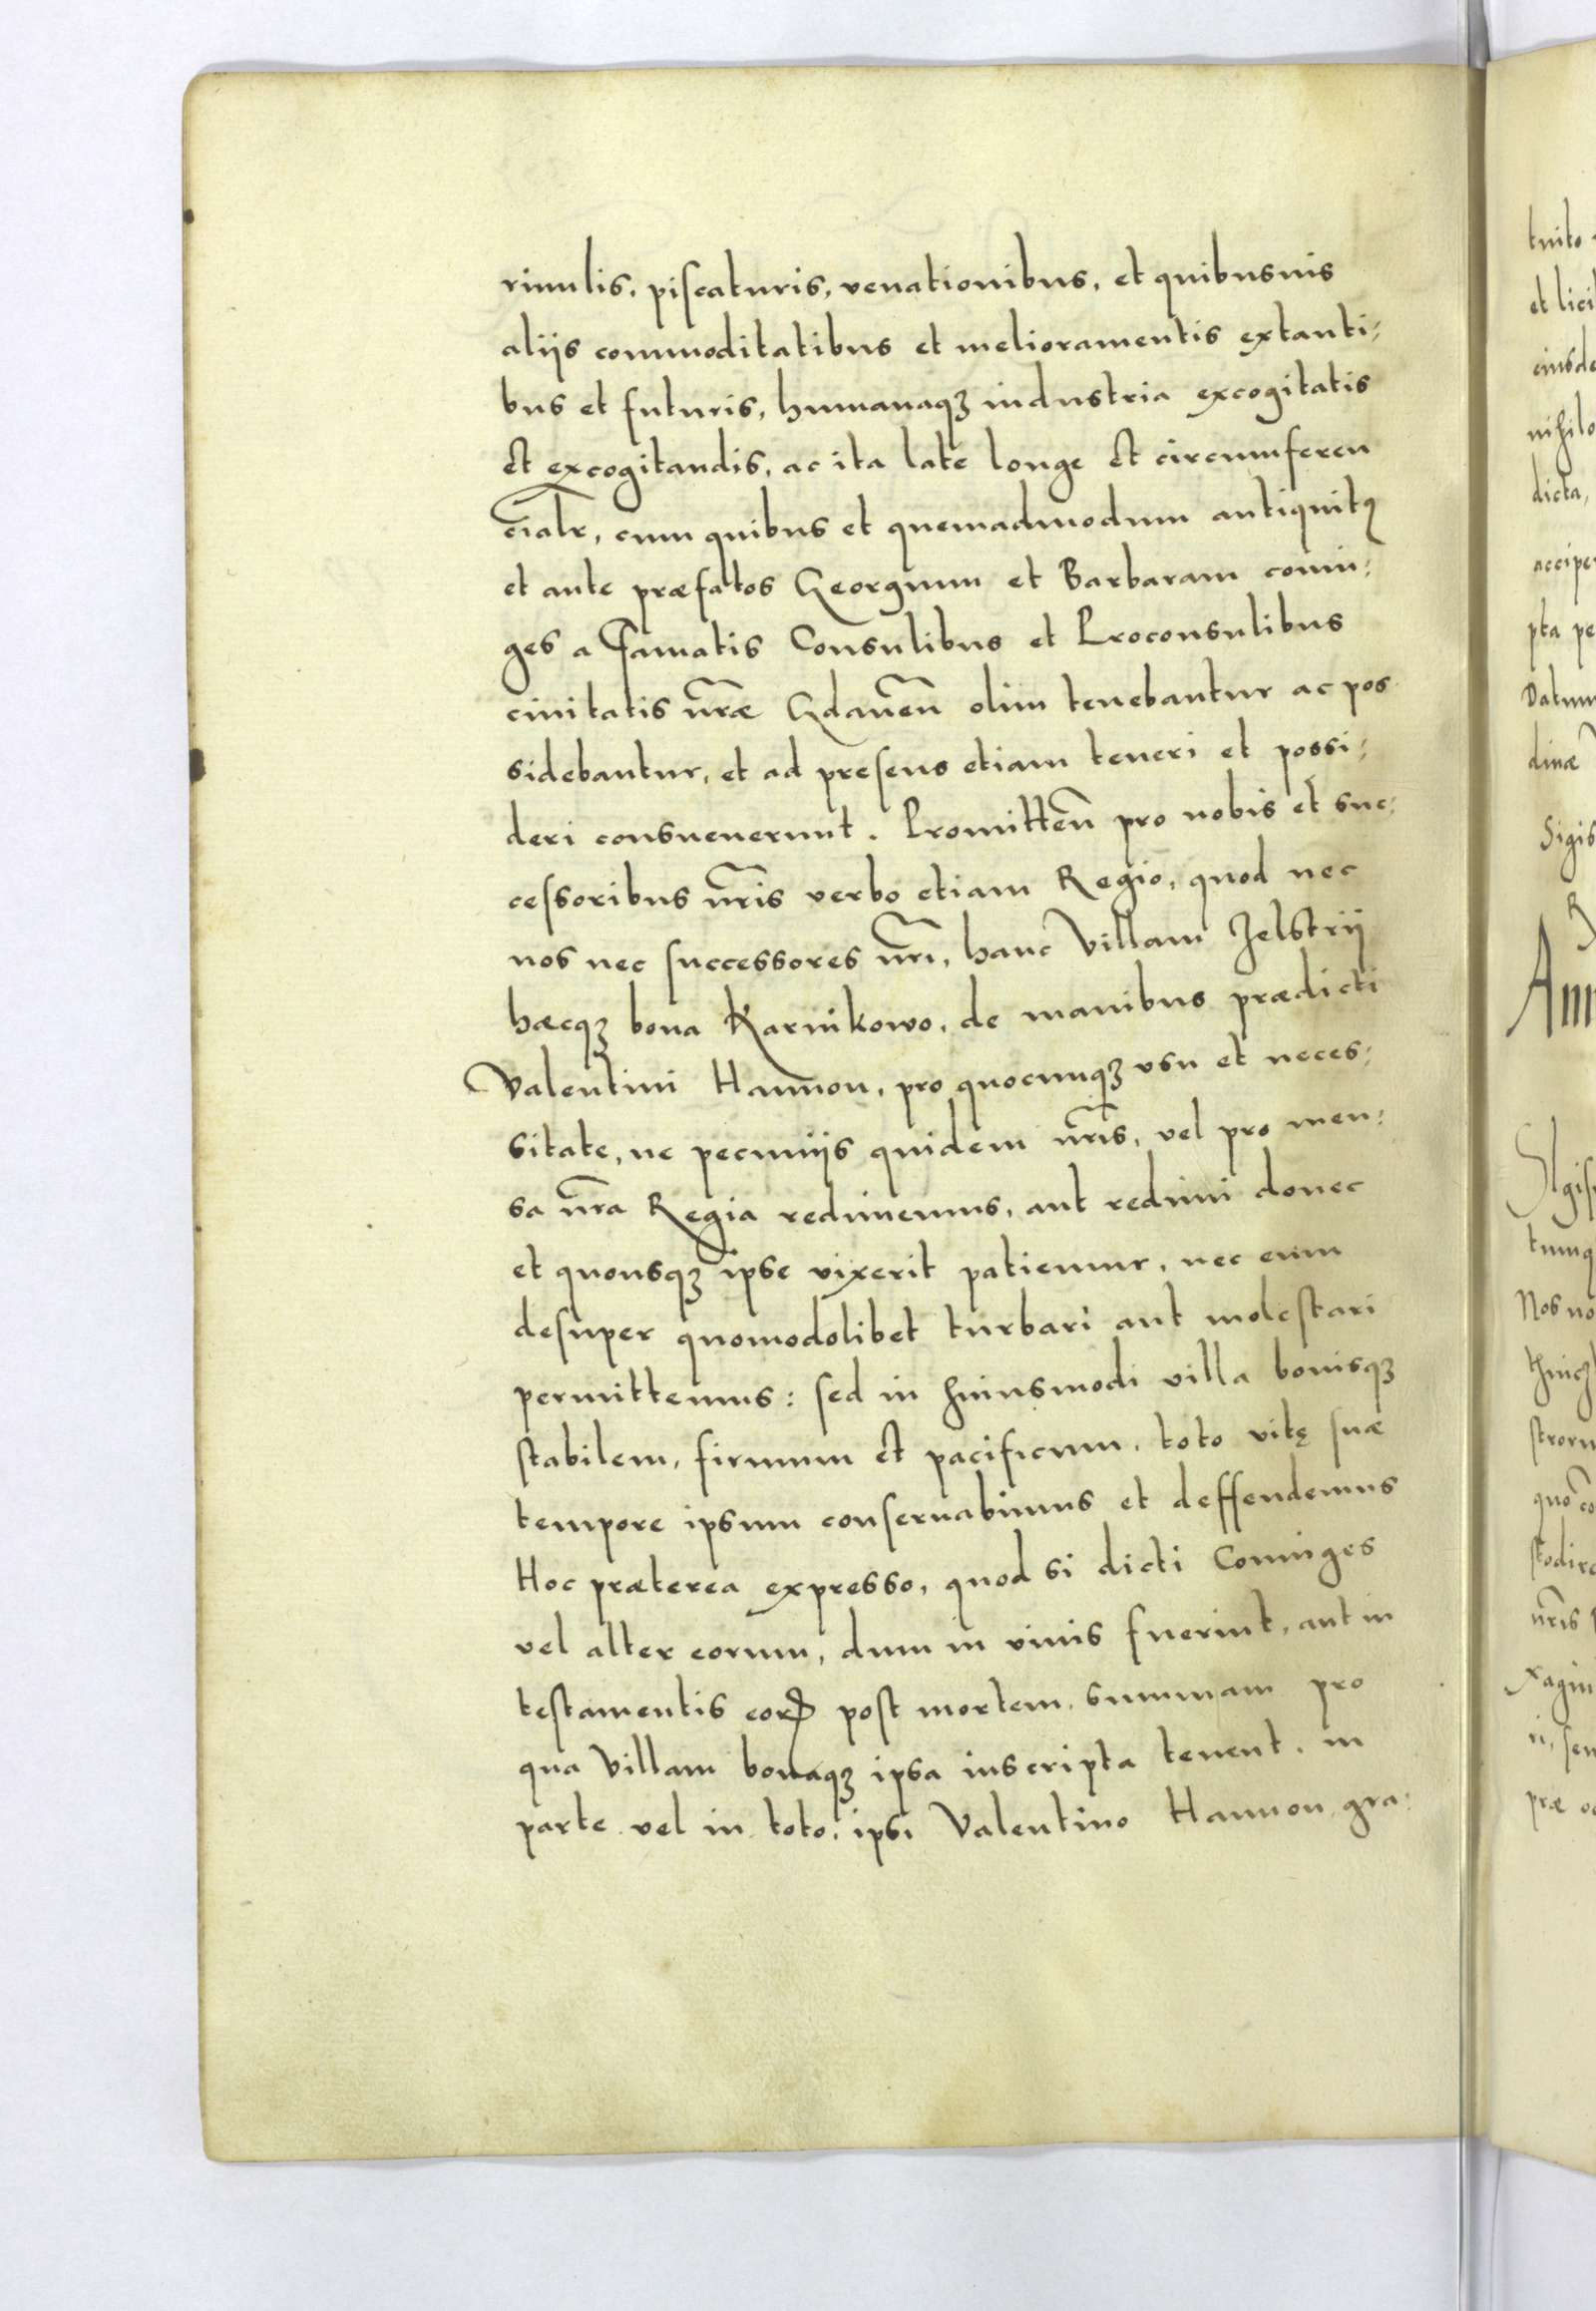 riuulis, piscaturis, venationibus, et quibusuis
aliis commoditatibus et melioramentis extanti:
bus et futuris, humanaqꝫ industria excogitatis
et excogitandis, ac ita late longe et circumferen
cialr̃, cum quibus et quemadmodum antiquitꝰ
et ante præfatos Georgium et Barbaram coniu:
ges a Famatis Consulibus et Proconsulibus
ciuitatis nr̃æ Gdaneñ olim tenebantur ac pos
sidebantur, et ad presens etiam teneri et possi:
deri consueuerunt. Promitteñ pro nobis et suc:
cessoribus nr̃is verbo etiam Regio, quod nec
nos nec successores nr̃i, hanc Villam Jelstrij
hæcqꝫ bona Karnikowo, de manibus prædicti
Valentini Hannon, pro quocunqꝫ vsu et neces:
sitate, ne pecuniis quidem nr̃is, vel pro men:
sa nr̃a Regia redimemus, aut redimi donec
et quousqꝫ ipse vixerit patiemur, nec eum
desuper quomodolibet turbari aut molestari
permittemus: sed in huiusmodi villa bonisqꝫ
stabilem, firmum et pacificum, toto vitę suæ
tempore ipsum conseruabimus et deffendemus
Hoc præterea expresso, quod si dicti Coniuges
vel alter eorum, dum in viuis fuerint, aut in
testamentis eorꝝ post mortem, summam pro
qua Villam bonaqꝫ ipsa inscripta tenent, in
parte vel in toto, ipsi Valentino Hannon gra: